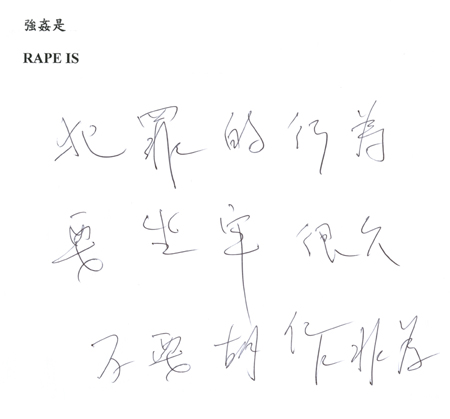 強姦是
RAPE IS
犯罪的行為
要坐牢很久
不要胡作非為